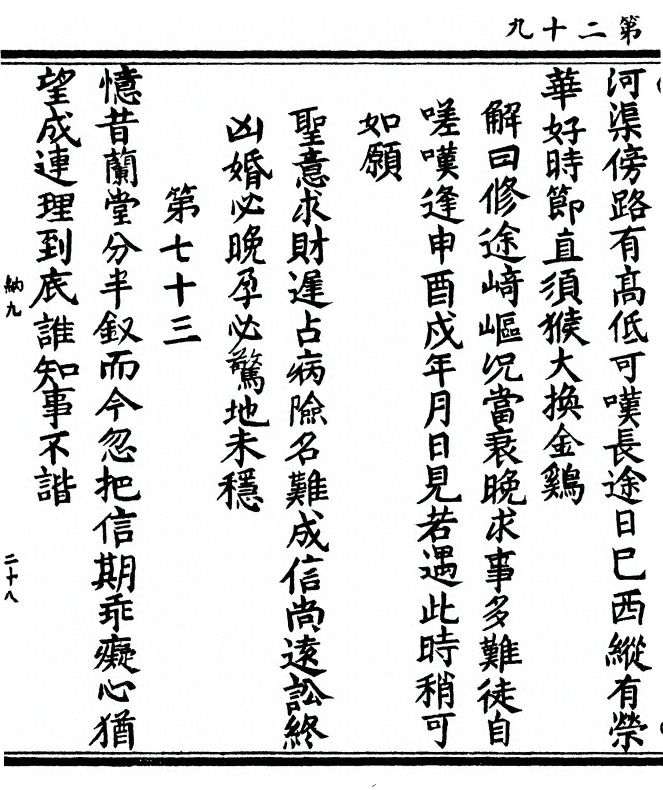 第二十九
河渠傍路有高低可嘆長途日巳西縱有榮
華好時節直須猴犬換金鷄
解曰修途﨑嶇况當衰晚求事多難徒自
嗟嘆逢申酉戍年月日見若遇此時稍可
如願
聖意求財遲占病險名難成信尚遠訟終
凶婚必晚孕必驚地未穩
第七十三
憶昔蘭堂分半釵而今忽把信期乖癡心猶
望成連理到底誰知事不諧
納九
二十八